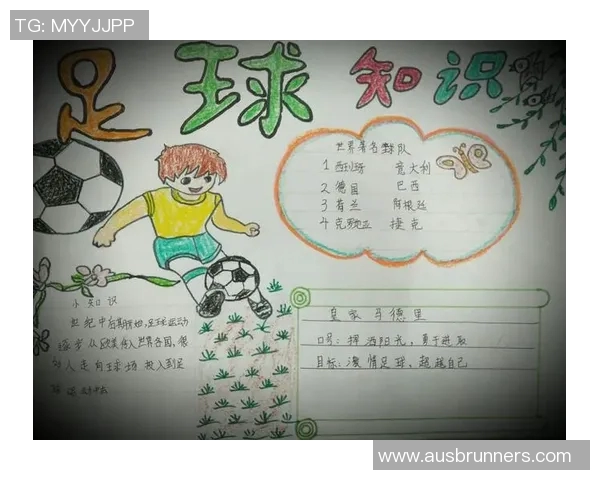 TG: MYYJJPP
足球知识
世界著名球队
1 西班牙 意大利
2 德国 巴西
3 荷兰 阿根廷
4 克罗地亚 捷克
小知识
世纪中后期开始,足球运动
逐步从欧美传入世界各国,很
多人走向球场投入到足
皇家马德里
口号:挥洒阳光,勇于进取
目标:激情足球,超越自己
www.ausbrunners.com